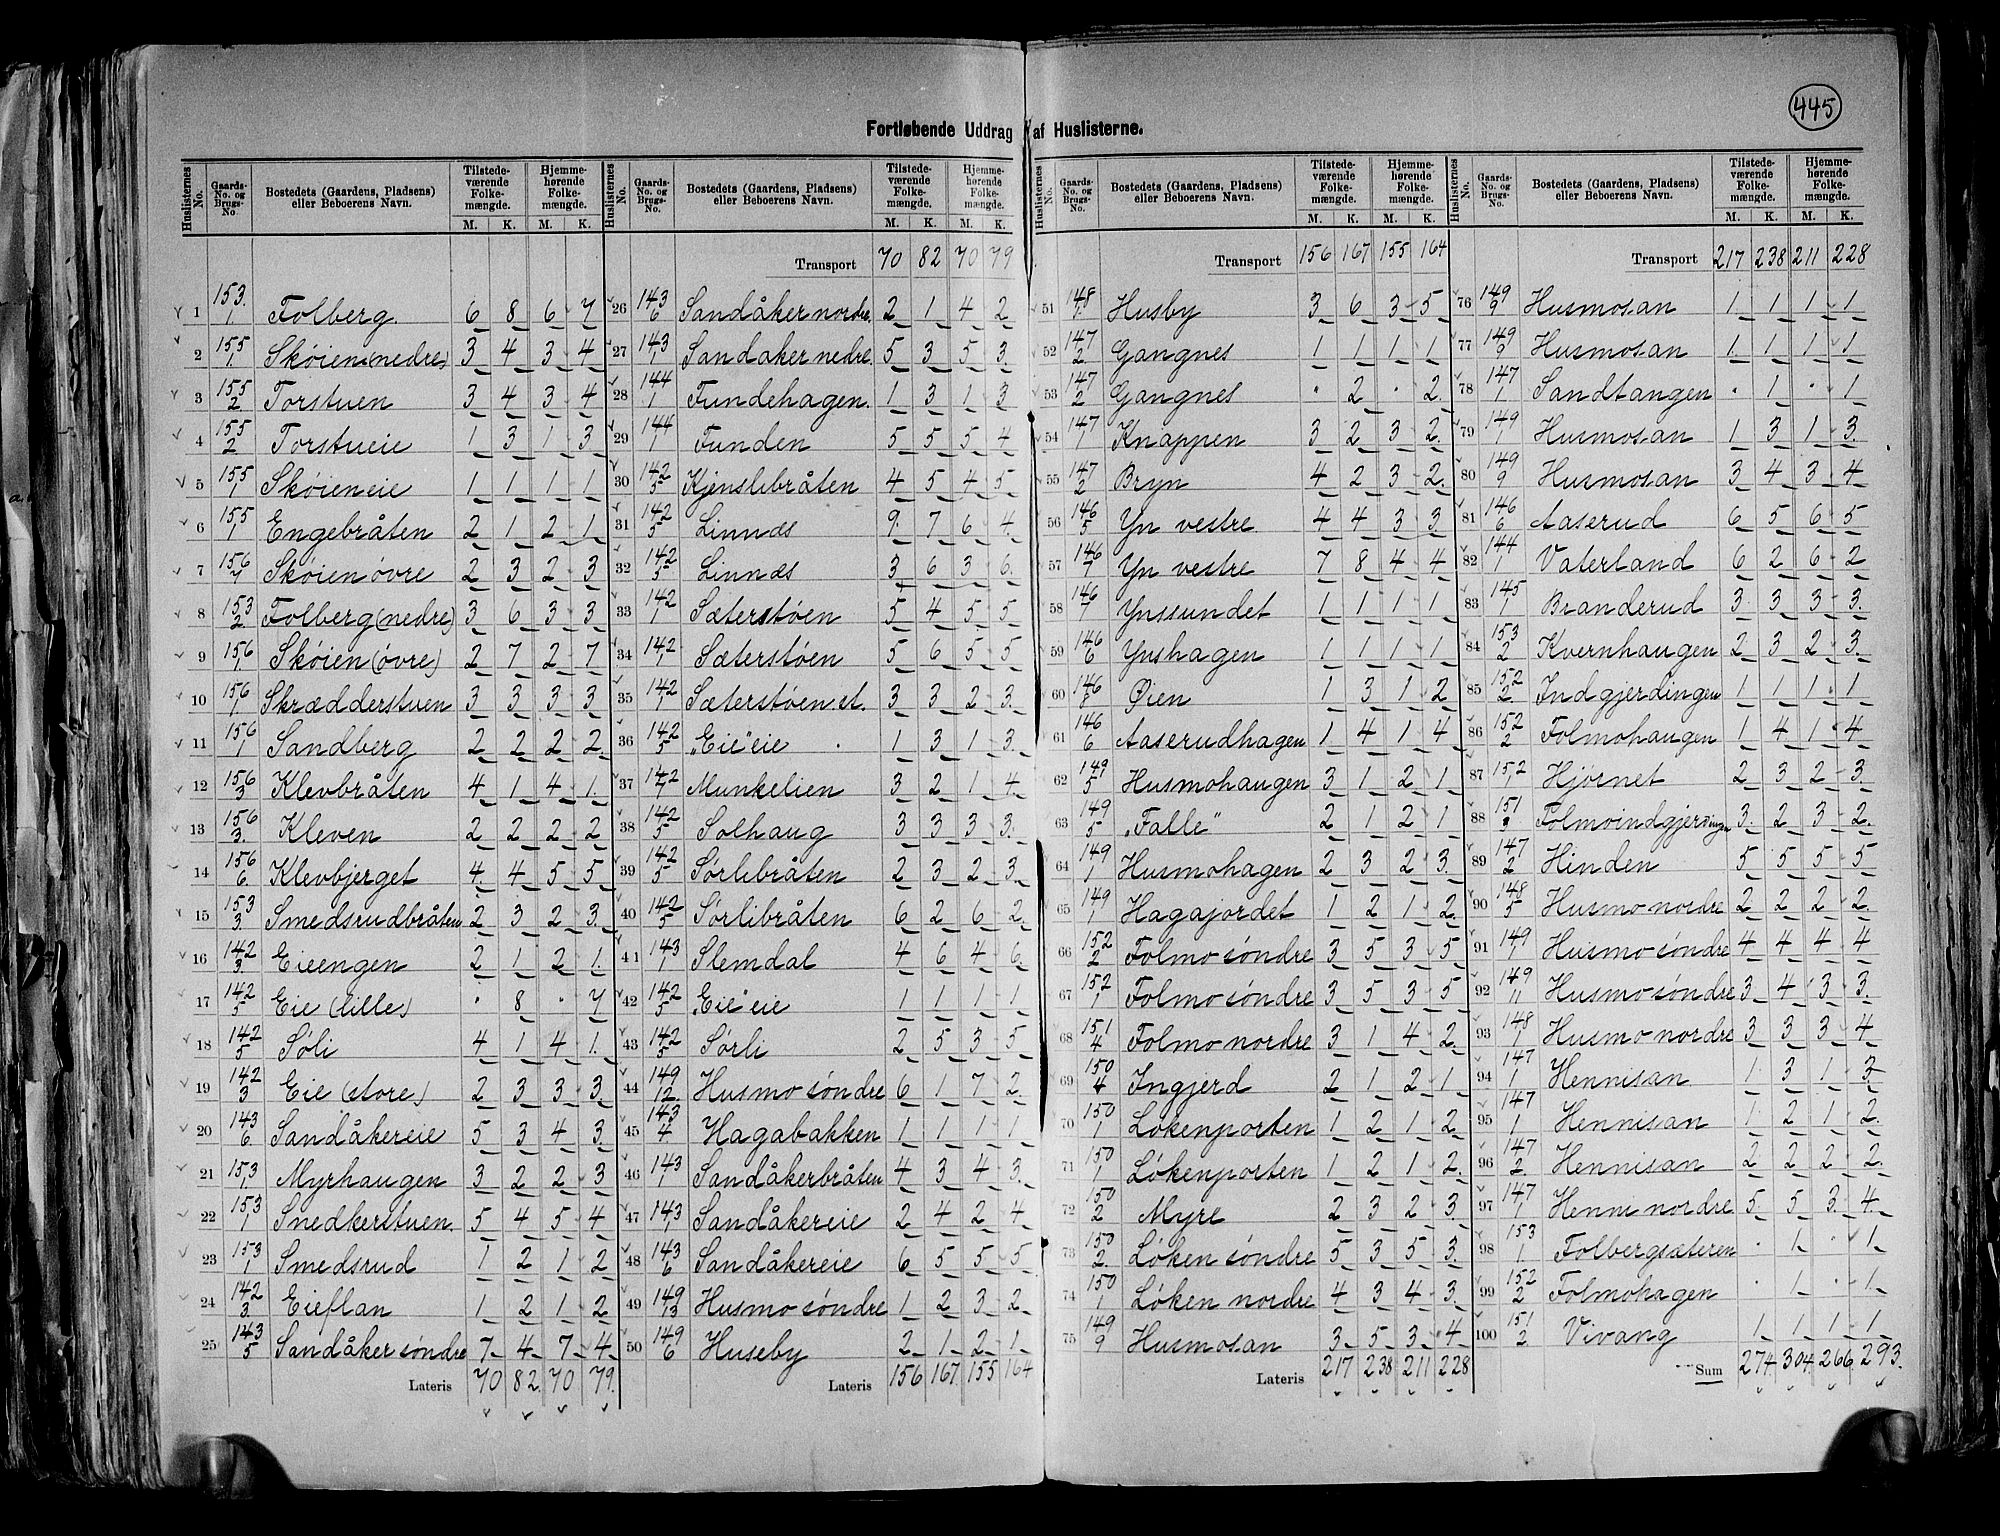 445
Fortløbende Uddrag af Huslisterne.
Huslisternes No. Gaards-No. og Brugs-No. Bostedets (Gaardens, Pladsens) eller Beboerens Navn. Tilstedeværende Folkemængde. M. K. Hjemmehørende Folkemængde. M. K.
1 153/1 Folberg 6 8 6 7
2 155/1 Skøien (nedre) 3 4 3 4
3 155/2 Torstuen 3 4 3 4
4 155/2 Torstueie 1 3 1 3
5 155/1 Skøieneie 1 1 1 1
6 155/1 Engebråten 2 1 2 1
7 156/7 Skøien øvre 2 3 2 3
8 153/2 Folberg (nedre) 3 6 3 3
9 156/1 Skøien (øvre) 2 7 2 7
10 156/1 Skrædderstuen 3 3 3 3
11 156/1 Sandberg 2 2 2 2
12 156/3 Klevbråten 4 1 4 1
13 156/3 Kleven 2 2 2 2
14 156/6 Klevbjerget 4 4 5 5
15 153/3 Smedsrudbråten 2 3 2 3
16 142/3 Eieengen 2 1 2 1
17 142/5 Eie (lille) · 8 · 7
18 142/5 Søli 4 1 4 1
19 142/3 Eie (store) 2 3 3 3
20 143/6 Sandåkereie 5 3 4 3
21 153/1 Myrhaugen 3 2 2 3
22 153/1 Snedkerstuen 5 4 5 4
23 153/1 Smedsrud 1 2 1 2
24 142/3 Eieflan 1 2 1 2
25 143/5 Sandåker søndre 7 4 7 4
Lateris 70 82 70 79
Huslisternes No. Gaards-No. og Brugs-No. Bostedets (Gaardens, Pladsens) eller Beboerens Navn. Tilstedeværende Folkemængde. M. K. Hjemmehørende Folkemængde. M. K.
Transport 70 82 70 79
26 143/6 Sandåker nordre 2 1 4 2
27 143/1 Sandaker nedre 5 3 5 3
28 144/1 Fundehagen 1 3 1 3
29 144/1 Funden 5 5 5 4
30 142/5 Kjenslibråten 4 5 4 5
31 142/5 Linnæs 9 7 6 4
32 142/5 Linnæs 3 6 3 6
33 142/1 Sæterstøen 5 4 5 5
34 142/1 Sæterstøen 5 6 5 5
35 142/1 Sæterstøen st. 3 3 2 3
36 142/5 "Eie" eie 1 3 1 3
37 142/7 Munkelien 3 2 1 4
38 142/5 Solhaug 3 3 3 3
39 142/5 Sørlibråten 2 3 2 3
40 142/5 Sørlibråten 6 2 6 2
41 143/1 Slemdal 4 6 4 6
42 142/5 "Eie" eie 1 1 1 1
43 142/5 Sørli 2 5 3 5
44 149/12 Husmo søndre 6 1 7 2
45 143/4 Hagabakken 1 1 1 1
46 143/1 Sandåkerbråten 4 3 4 3
47 143/1 Sandåkereie 2 4 2 4
48 143/6 Sandåkereie 6 5 5 5
49 149/13 Husmo søndre 1 2 3 2
50 149/6 Huseby 2 1 2 1
Lateris 156 167 155 164
Huslisternes No. Gaards-No. og Brugs-No. Bostedets (Gaardens, Pladsens) eller Beboerens Navn. Tilstedeværende Folkemængde. M. K. Hjemmehørende Folkemængde. M. K.
Transport 156 167 155 164
51 148/1 Husby 3 6 3 5
52 147/2 Gangnes 1 1 1 1
53 147/2 Gangnes · 2 · 2
54 147/1 Knappen 3 2 3 2
55 147/2 Bryn 4 2 3 2
56 146/5 Yn vestre 4 4 3 3
57 146/7 Yn vestre 7 8 4 4
58 146/7 Ynssundet 1 1 1 1
59 146/6 Ynshagen 1 1 1 1
60 146/8 Øien 1 3 1 2
61 146/6 Aaserudhagen 1 4 1 4
62 149/5 Husmohaugen 3 1 2 1
63 149/5 "Falle" 2 1 2 1
64 149/1 Husmohagen 2 3 2 3
65 149/1 Hagajordet 1 2 1 2
66 152/2 Folmo søndre 3 5 3 5
67 152/1 Folmo søndre 3 5 3 5
68 151/4 Folmo nordre 3 1 4 2
69 150/4 Ingjerd 2 1 2 1
70 150/1 Løkenporten 1 2 1 2
71 150/1 Løkenporten 1 2 1 2
72 150/2 Myre 2 3 2 3
73 150/2 Løken søndre 5 3 5 3
74 150/1 Løken nordre 4 3 4 3
75 149/9 Husmosan 3 5 3 4
Lateris 217 238 211 228
Huslisternes No. Gaards-No. og Brugs-No. Bostedets (Gaardens, Pladsens) eller Beboerens Navn. Tilstedeværende Folkemængde. M. K. Hjemmehørende Folkemængde. M. K.
Transport 217 238 211 228
76 149/9 Husmosan 1 1 1 1
77 149/9 Husmosan 1 1 1 1
78 147/1 Sandtangen · 1 · 1
79 149/1 Husmosan 1 3 1 3
80 149/9 Husmosan 3 4 3 4
81 146/6 Aaserud 6 5 6 5
82 144/1 Vaterland 6 2 6 2
83 145/1 Branderud 3 3 3 3
84 153/2 Kvernhaugen 2 3 2 3
85 152/2 Indgjerdingen 1 1 1 1
86 152/2 Folmohaugen 1 4 1 4
87 152/1 Hjørnet 2 3 2 3
88 151/3 Folmoindgjerdingen 3 2 3 2
89 147/2 Hinden 5 5 5 5
90 148/5 Husmo nordre 2 2 2 2
91 149/1 Husmo søndre 4 4 4 4
92 149/11 Husmo søndre 3 4 3 3
93 148/1 Husmo nordre 3 3 3 4
94 147/1 Hennisan 1 3 1 3
95 147/1 Hennisan 1 2 1 2
96 147/2 Hennisan 2 2 2 2
97 147/1 Henni nordre 5 5 3 4
98 153/1 Folbergsæteren · 1 · 1
99 152/2 Folmohagen · 1 · 1
100 151/2 Vivang 1 1 1 1
Sum 274 304 266 293